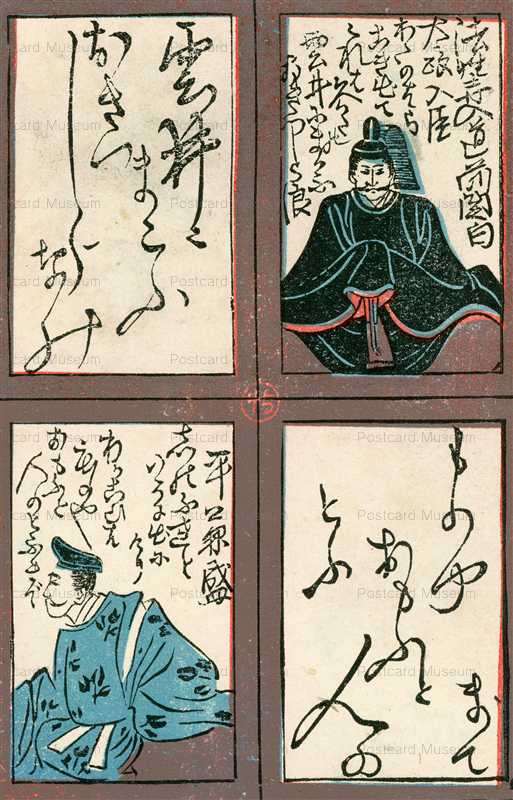 法性寺入道前関白
太政大臣
わたのはら
こぎ出て
雲井にまがふ
おきつしら浪
雲井に
まごふ
おきつ
しら
なみ
ものや
おもふと
人の
とふ
まて
平兼盛
しのぶれど
いろに出に
けり
わがこひは
ものや
おもふと
人のとふまで
Postcard Museum